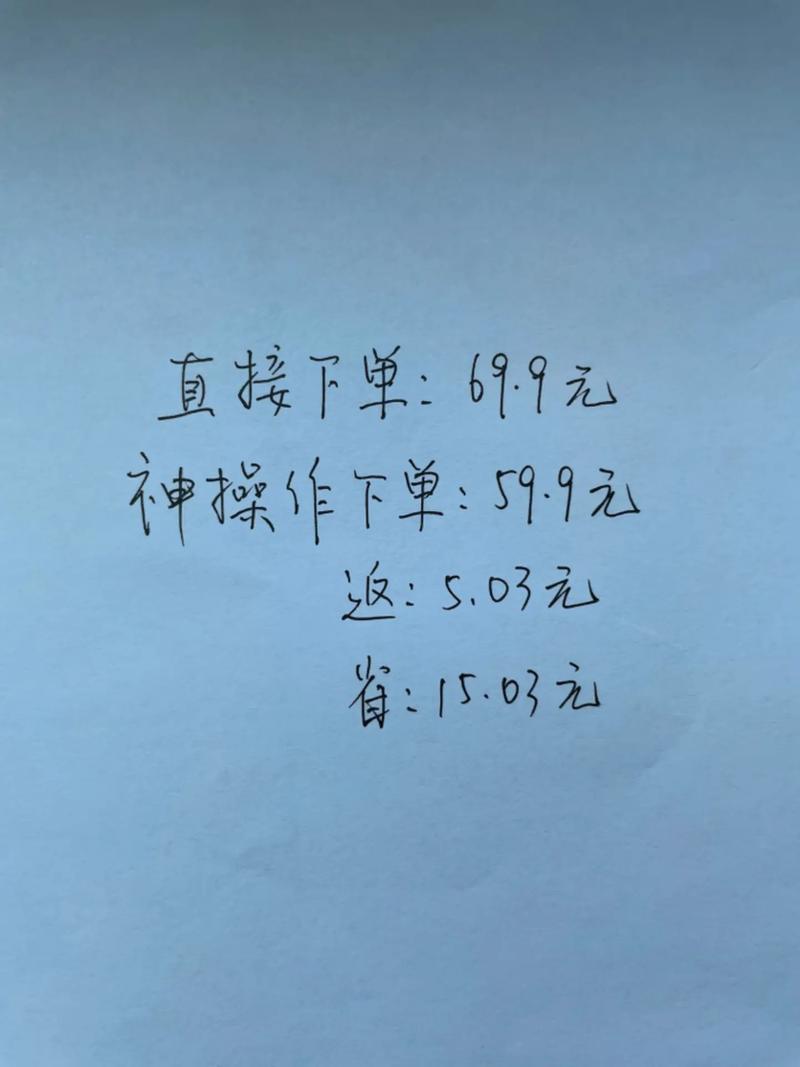 直接下单：69.9元
神操作下单：59.9元
返：5.03元
省：15.03元